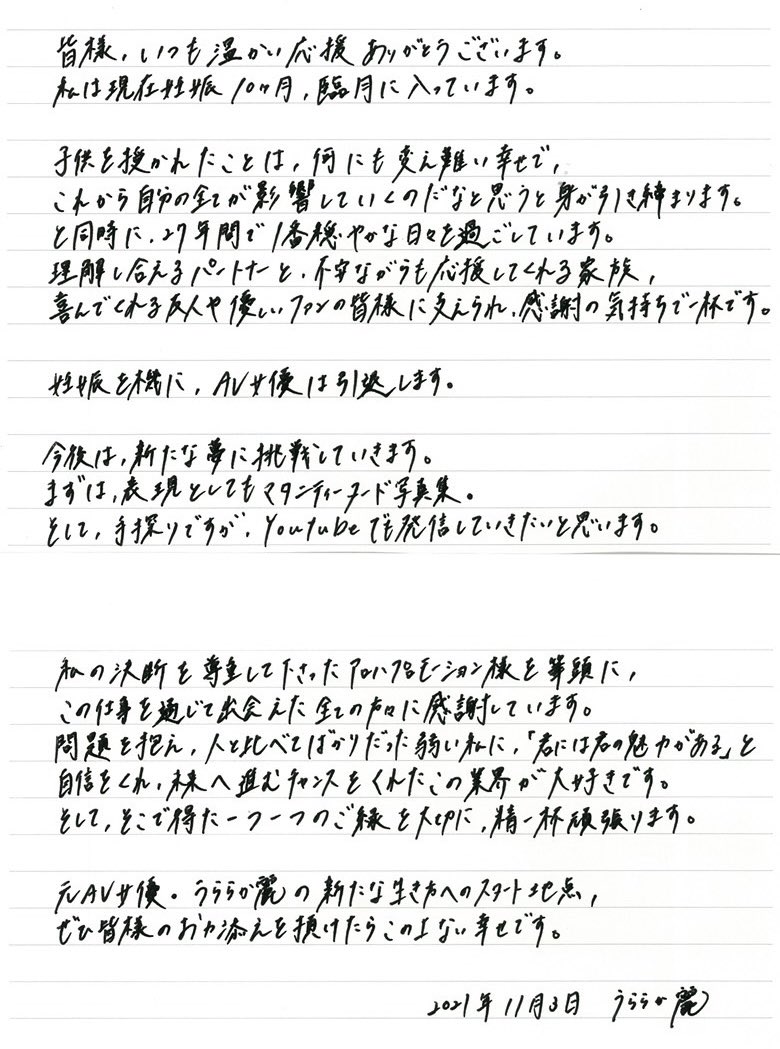 皆様、いつも温かい応援ありがとうございます。
私は現在妊娠10ヶ月、臨月に入っています。
子供を授かれたことは、何にも変え難い幸せで、
これから自分の全てが影響していくのだなと思うと身が引き締まります。
と同時に、27年間で1番穏やかな日々を過ごしています。
理解し合えるパートナーと、不安ながらも応援してくれる家族、
喜んでくれる友人や優しいファンの皆様に支えられ、感謝の気持ちで一杯です。
妊娠を機に、AV女優は引退します。
今後は、新たな夢に挑戦していきます。
まずは、表現としてもマタニティーヌード写真集。
そして、手探りですが、Youtubeでも発信していきたいと思います。
私の決断を尊重して下さったアロハプロモーション様を筆頭に、
この仕事を通じて出会えた全ての方々に感謝しています。
問題を抱え、人と比べてばかりだった弱い私に、「君には君の魅力がある」と
自信をくれ、未来へ進むチャンスをくれたこの業界が大好きです。
そして、そこで得た一つ一つのご縁を大切に、精一杯頑張ります。
元AV女優。うららか麗の新たな生き方へのスタート地点、
ぜひ皆様のお力添えを頂けたらこの上ない幸せです。
2021年11月3日 うららか麗